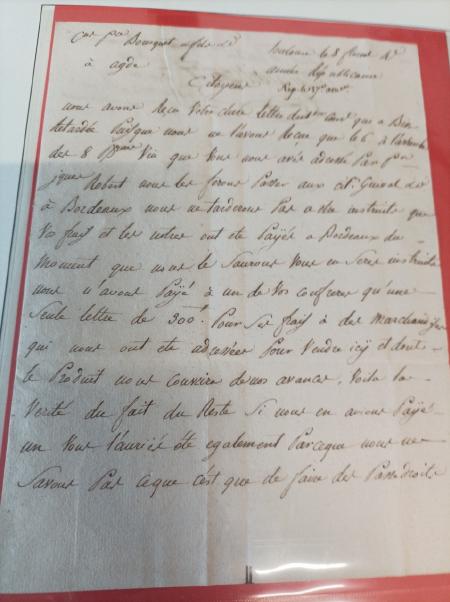 Cen Pre Bousquet et fils &
Toulouse le 8 4e
à agde
année Républicaine
Citoyens
Rep. le 17
nous avons Reçu votre chere lettre du cour qui a Bien
Retardée Puisque nous ne l'avons Reçue que le 6 à
des 8 Via que vous nous avié adressé Par
Robert nous les ferons Passer aux cit.
à Bordeaux nous ne tarderons Pas a etre instruits que
Vos fraix et les notres ont eté Payés a Bordeaux du
moment que nous le Saurons Vous en Serés instruits
nous n'avons Payé à un de Vos confreres qu'une
Seule lettre de 300 Pour Ses fraix à des marchandises
qui nous ont eté adressées Pour Vendre icy et dont
le Produit nous couvrira de nos avances, Voila la
Verité du fait du Reste Si nous en avions Payé
un Vous l'auriés été egalement Parceque nous ne
Savons Pas ceque c'est que de faire des Passedroits